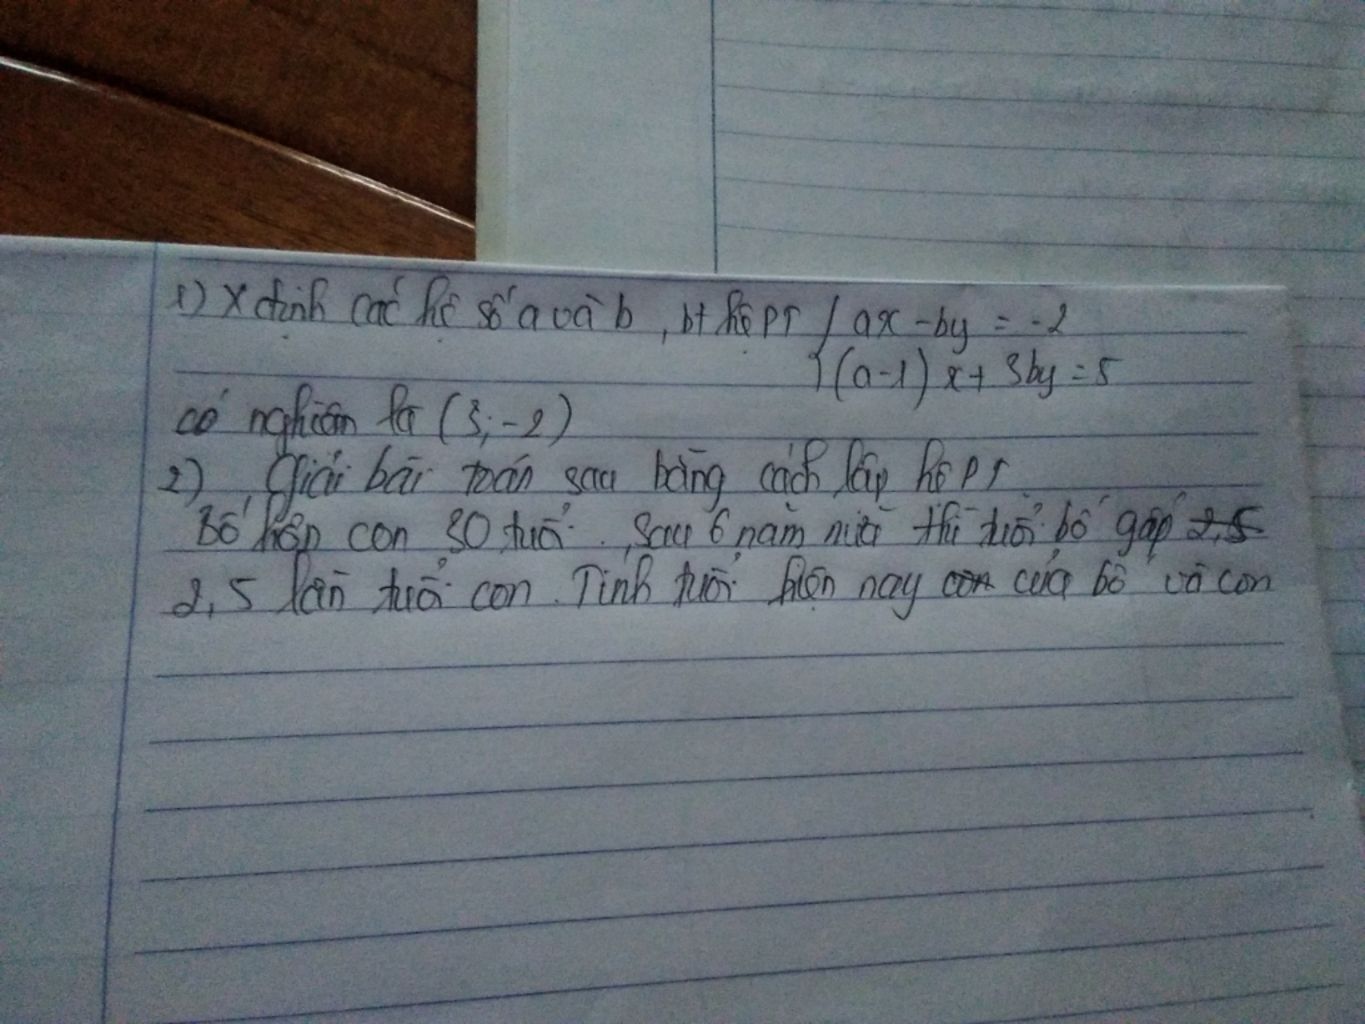 1) X định các hệ số a và b, bt hệ PT { ax - by = -2
(a-1) x + 3by = 5
có nghiệm là (3; -2)
2) Giải bài toán sau bằng cách lập hệ PT
Bố hơn con 30 tuổi. Sau 6 năm nữa thì tuổi bố gấp 2,5
2,5 lần tuổi con. Tính tuổi hiện nay con của bố và con